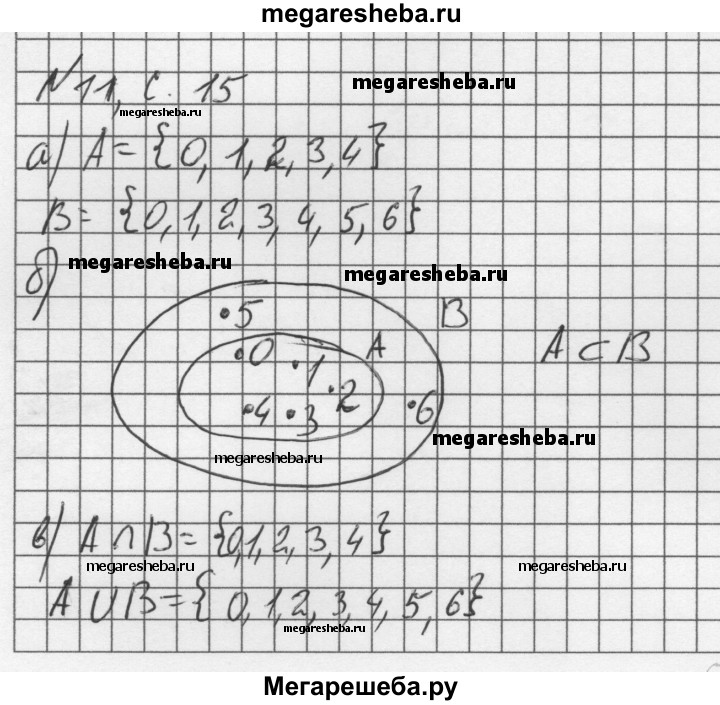 megaresheba.ru
№ 11, с. 15
megaresheba.ru
megaresheba.ru
а) A = {0, 1, 2, 3, 4}
B = {0, 1, 2, 3, 4, 5, 6}
megaresheba.ru
megaresheba.ru
б)
5
B
0
A
1
A ⊂ B
2
4
3
6
megaresheba.ru
megaresheba.ru
в) A ∩ B = {0,1,2,3,4}
megaresheba.ru
megaresheba.ru
A ∪ B = {0,1,2,3,4,5,6}
megaresheba.ru
Мегарешеба.ру